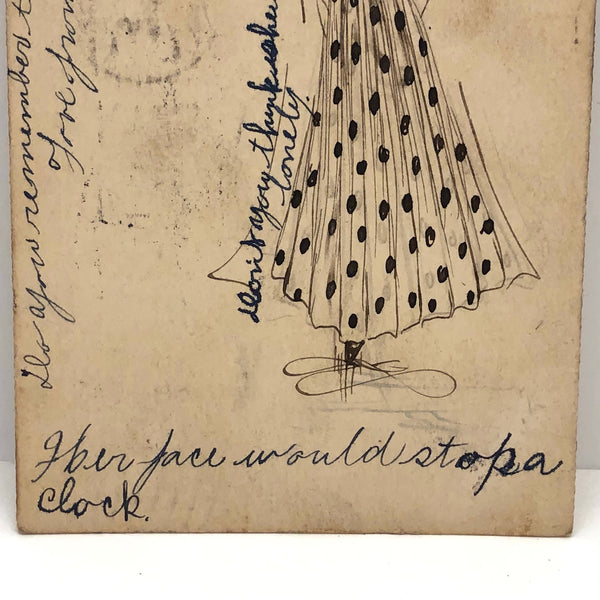 Do you remember t
Love from
Don't you think she
lovely
Her face would stop a
clock.